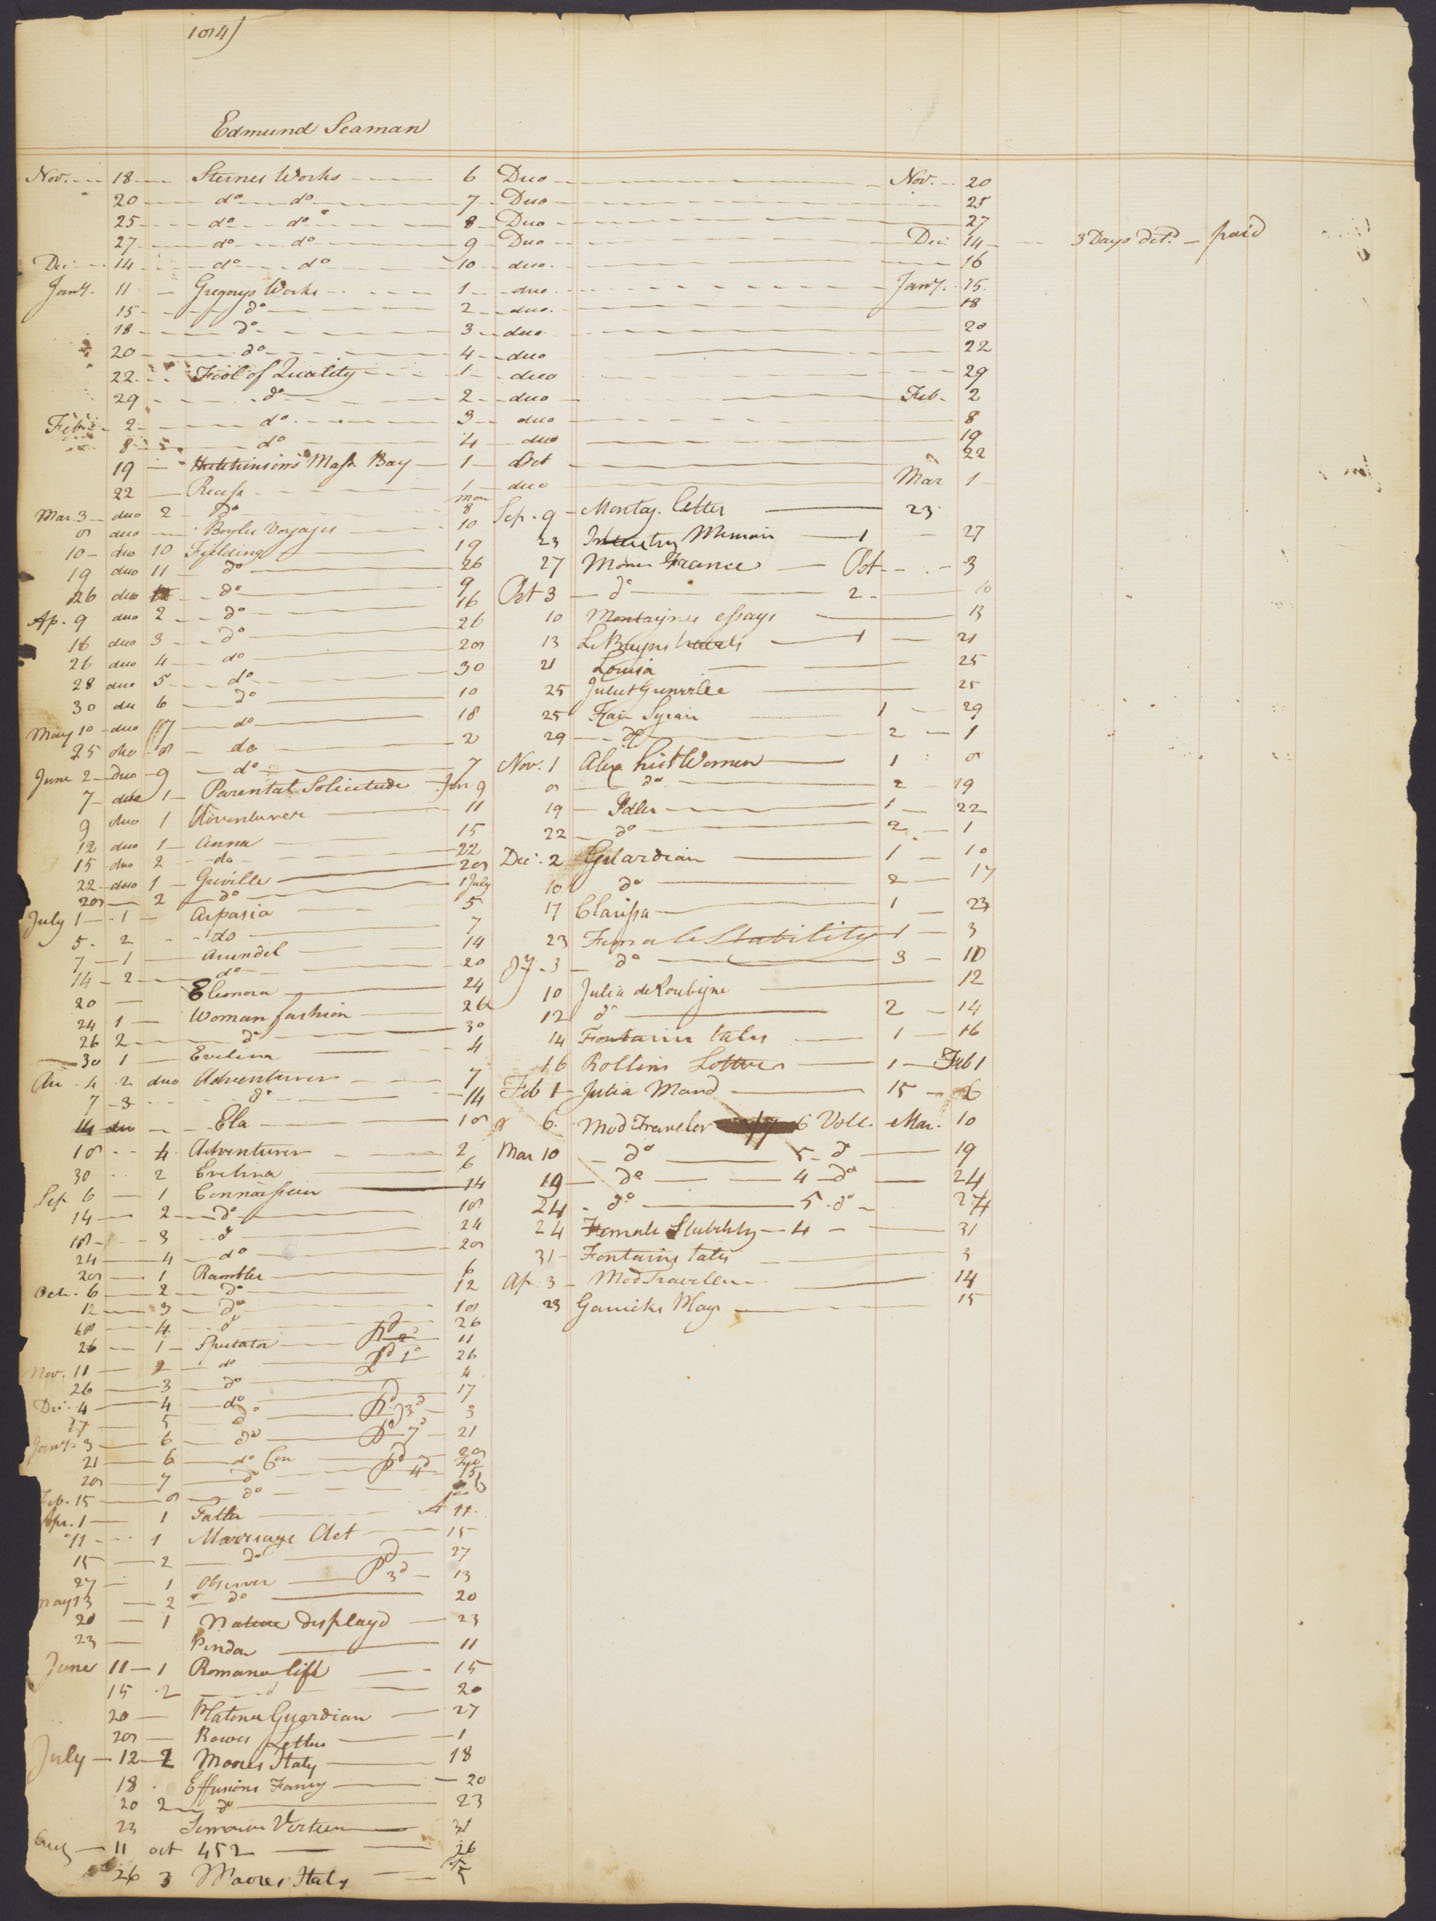 184)
Edmund Seaman
Nov. 18 Sternes Works 6 Duo Nov. 20
20 do do 7 Duo 25
25 do do 8 Duo 27
27 do do 9 Duo Dec 14 3 Days det.d paid
Dec 14 do do 10 duo 16
Jany. 11 Gregorys Works 1 duo Jany. 15
15 do 2 duo 18
18 do 3 duo 20
20 do 4 duo 22
22 Fool of Quality 1 duo 29
29 do 2 duo Feb. 2
Feb. 2 do 3 duo 8
8 do 4 duo 19
19 Hutchinsons Mass Bay 1 Oct 22
22 Recess 1 duo Mar 1
Mar 3 duo 2 do mar 8
8 duo Boyles Voyages 10
10 duo 10 Fielding 19
19 duo 11 do 26
26 duo do 9
Ap. 9 duo 2 do 16
16 duo 3 do 26
26 duo 4 do 28
28 duo 5 do 30
30 du 6 do 10
May 10 duo 7 do 18
25 duo 8 do 2
June 2 Duo 9 do 7
7 duo 1 Parental Solicitude Jun 9
9 duo 1 Adventurer 11
12 duo 1 Anna 15
15 duo 2 do 22
22 duo 1 Greville 28
28 2 do 1 July
July 1 1 Aspasia 5
5 2 do 7
7 1 Arundel 14
14 2 do 20
20 Eleonora 24
24 1 Woman fashion 26
26 2 do 30
30 1 Evelina 4
Au 4 2 duo Adventurer 7
7 3 do 14
14 duo Ela 18
18 4 Adventurer 2
30 2 Evelina 6
Sep 6 1 Connoisseur 14
14 2 do 18
18 3 do 24
24 4 do 28
28 1 Rambler 6
Oct. 6 2 do 12
12 3 do 18
18 4 do 26
26 1 Spectator pd 11
Nov. 11 2 do pd 26
26 3 do 4
Dec. 4 4 do 17
17 5 do pd 3d 3
Jany 3 6 do pd 7d 21
21 6 do Con 28
28 7 do pd 4d 15
Feb. 15 8 do
Apr. 1 1 Fatler A 11
11 1 Marriage Act 15
15 2 do 27
27 1 Observer pd 3d 13
May 13 2 do 20
20 1 Nature displayd 23
23 Pindar 11
June 11 1 Romance life 15
15 2 d 20
20 Platonic Guardian 27
28 Rowes Letters 1
July 12 2 Moores Italy 18
18 Effusions Fancy 20
20 2 do 23
23
Aug 11 oct 452 26
26 3 Moores Italy 5
Sep. 9 Montag. letter 23
23 Memoir 1 27
27 Moores France Oct 3
Oct 3 do 2 10
10 Montaignes essays 13
13 Le Bruyns travels 1 21
21 Louisa 25
25 Juliet Grenville 25
25 Fair Syrian 1 29
29 do 2 1
Nov. 1 Alex hist Women 1 8
8 do 2 19
19 Idler 1 22
22 do 2 1
Dec. 2 Guardian 1 10
10 do 2 17
17 Clarissa 1 23
23 Female Stability 1 3
Jy. 3 do 3 10
10 Julia de Roubigne 12
12 do 2 14
14 Fontaine tales 1 16
16 Rollins Letters 1 Feb 1
Feb 1 Julia Mand 15 6
6 Mod Traveler 6 Voll. Mar. 10
Mar 10 do 5 do 19
19 do 4 do 24
24 do 5 do 24
24 Female Stability 4 31
31 Fontains tales 3
Ap. 3 Mod Traveler 14
23 Garricks Plays 15